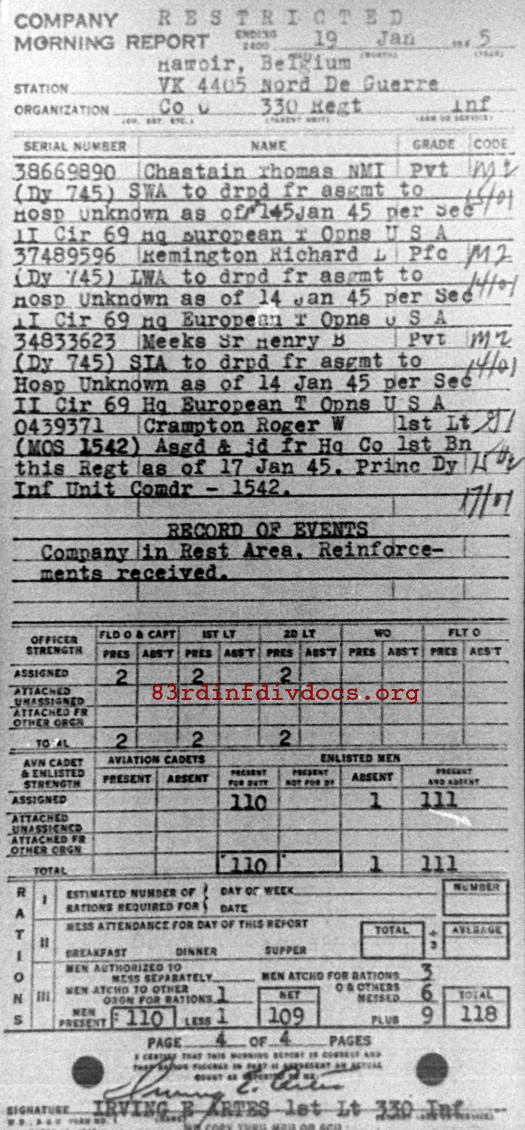 RESTRICTED
COMPANY
MORNING REPORT ENDING 2400 19 Jan 1945
Hamoir, Belgium
STATION VK 4405 Nord De Guerre
ORGANIZATION Co C 330 Regt Inf
SERIAL NUMBER NAME GRADE CODE
38669890 Chastain Thomas NMI Pvt M2
(Dy 745) SWA to drpd fr asgmt to
Hosp Unknown as of 145Jan 45 per Sec
II Cir 69 Hq European T Opns U S A
37489596 Remington Richard L Pfc M2
(Dy 745) LWA to drpd fr asgmt to 14/01
Hosp Unknown as of 14 Jan 45 per Sec
II Cir 69 Hq European T Opns U S A
34833623 Meeks Sr Henry B Pvt M2
(Dy 745) SIA to drpd fr asgmt to 14/01
Hosp Unknown as of 14 Jan 45 per Sec
II Cir 69 Hq European T Opns U S A
0439371 Crampton Roger W 1st Lt
(MOS 1542) Asgd & jd fr Hq Co 1st Bn
this Regt as of 17 Jan 45. Princ Dy
Inf Unit Comdr - 1542. 17/01
RECORD OF EVENTS
Company in Rest Area. Reinforce-
ments received.
OFFICER STRENGTH FLD O & CAPT 1ST LT 2D LT WO FLT O
PRES ABS'T PRES ABS'T PRES ABS'T PRES ABS'T PRES ABS'T
ASSIGNED 2 2 2
ATTACHED UNASSIGNED
83rdinfdivdocs.org
ATTACHED FR OTHER ORGN
TOTAL 2 2 2
AVN CADET & ENLISTED STRENGTH AVIATION CADETS ENLISTED MEN
PRESENT ABSENT PRESENT FOR DUTY PRESENT NOT FOR DY ABSENT PRESENT AND ABSENT
ASSIGNED 110 1 111
ATTACHED UNASSIGNED
ATTACHED FR OTHER ORGN
TOTAL 110 1 111
RATIONS
I ESTIMATED NUMBER OF RATIONS REQUIRED FOR DAY OF WEEK DATE NUMBER
II MESS ATTENDANCE FOR DAY OF THIS REPORT TOTAL ÷ 3 AVERAGE
BREAKFAST DINNER SUPPER
III MEN AUTHORIZED TO MESS SEPARATELY MEN ATCHD FOR RATIONS 3
MEN ATCHD TO OTHER ORGN FOR RATIONS 1 NET O & OTHERS MESSED 6 TOTAL
MEN PRESENT 110 LESS 1 109 PLUS 9 118
PAGE 4 OF 4 PAGES
I CERTIFY THAT THIS MORNING REPORT IS CORRECT AND
THAT RATION FIGURES IN PART II REPRESENT AN ACTUAL
COUNT AS REPORTED TO ME.
Irving E. Artes
SIGNATURE IRVING E ARTES 1st Lt 330 Inf